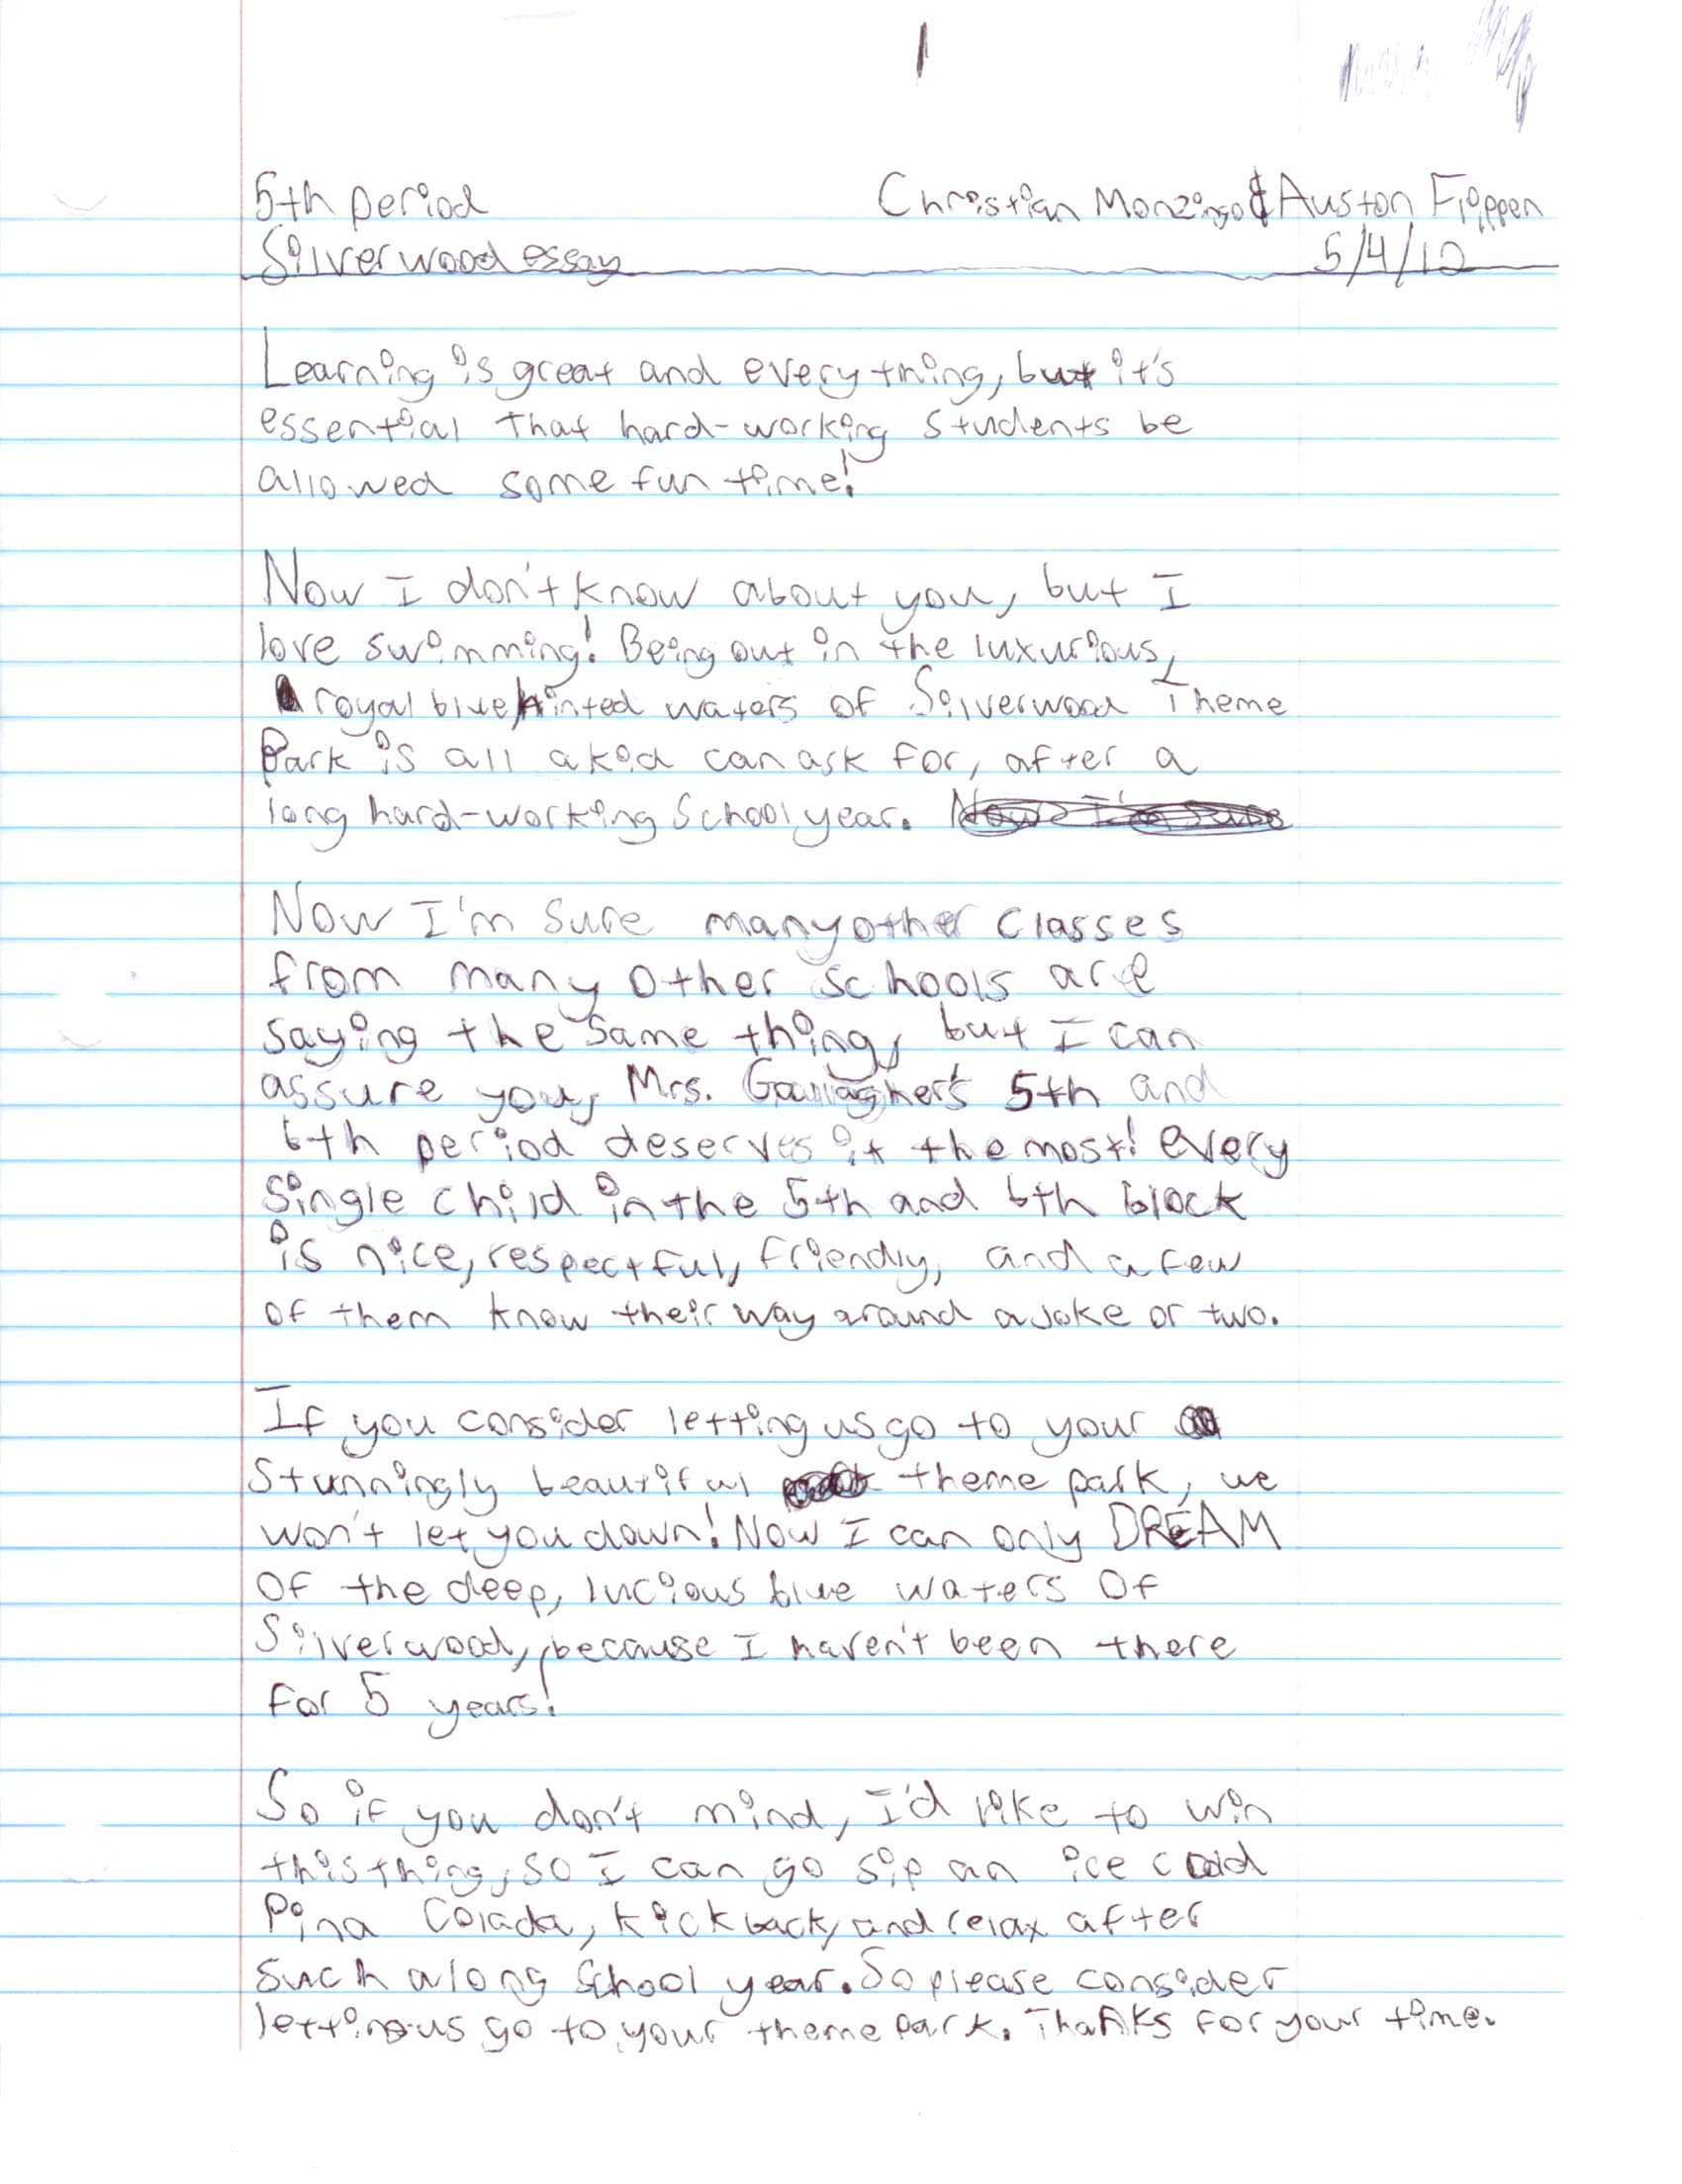 5th period Christian Monzingo & Auston Flippen
Silverwood essay 5/4/12
Learning is great and everything, but it's
essential that hard-working students be
allowed some fun time!
Now I don't know about you, but I
love swimming! Being out in the luxurious,
royal blue hinted waters of Silverwood Theme
Park is all a kid can ask for, after a
long hard-working School year. Now I'm sure
Now I'm sure many other classes
from many other schools are
saying the same thing, but I can
assure you, Mrs. Gallagher's 5th and
6th period deserves it the most! Every
single child in the 5th and 6th block
is nice, respectful, friendly, and a few
of them know their way around a joke or two.
If you consider letting us go to your
stunningly beautiful theme park, we
won't let you down! Now I can only DREAM
of the deep, lucious blue waters of
Silverwood, because I haven't been there
for 5 years!
So if you don't mind, I'd like to win
this thing, so I can go sip an ice cold
Pina Colada, kick back, and relax after
such a long school year. So please consider
letting us go to your theme park. Thanks for your time.